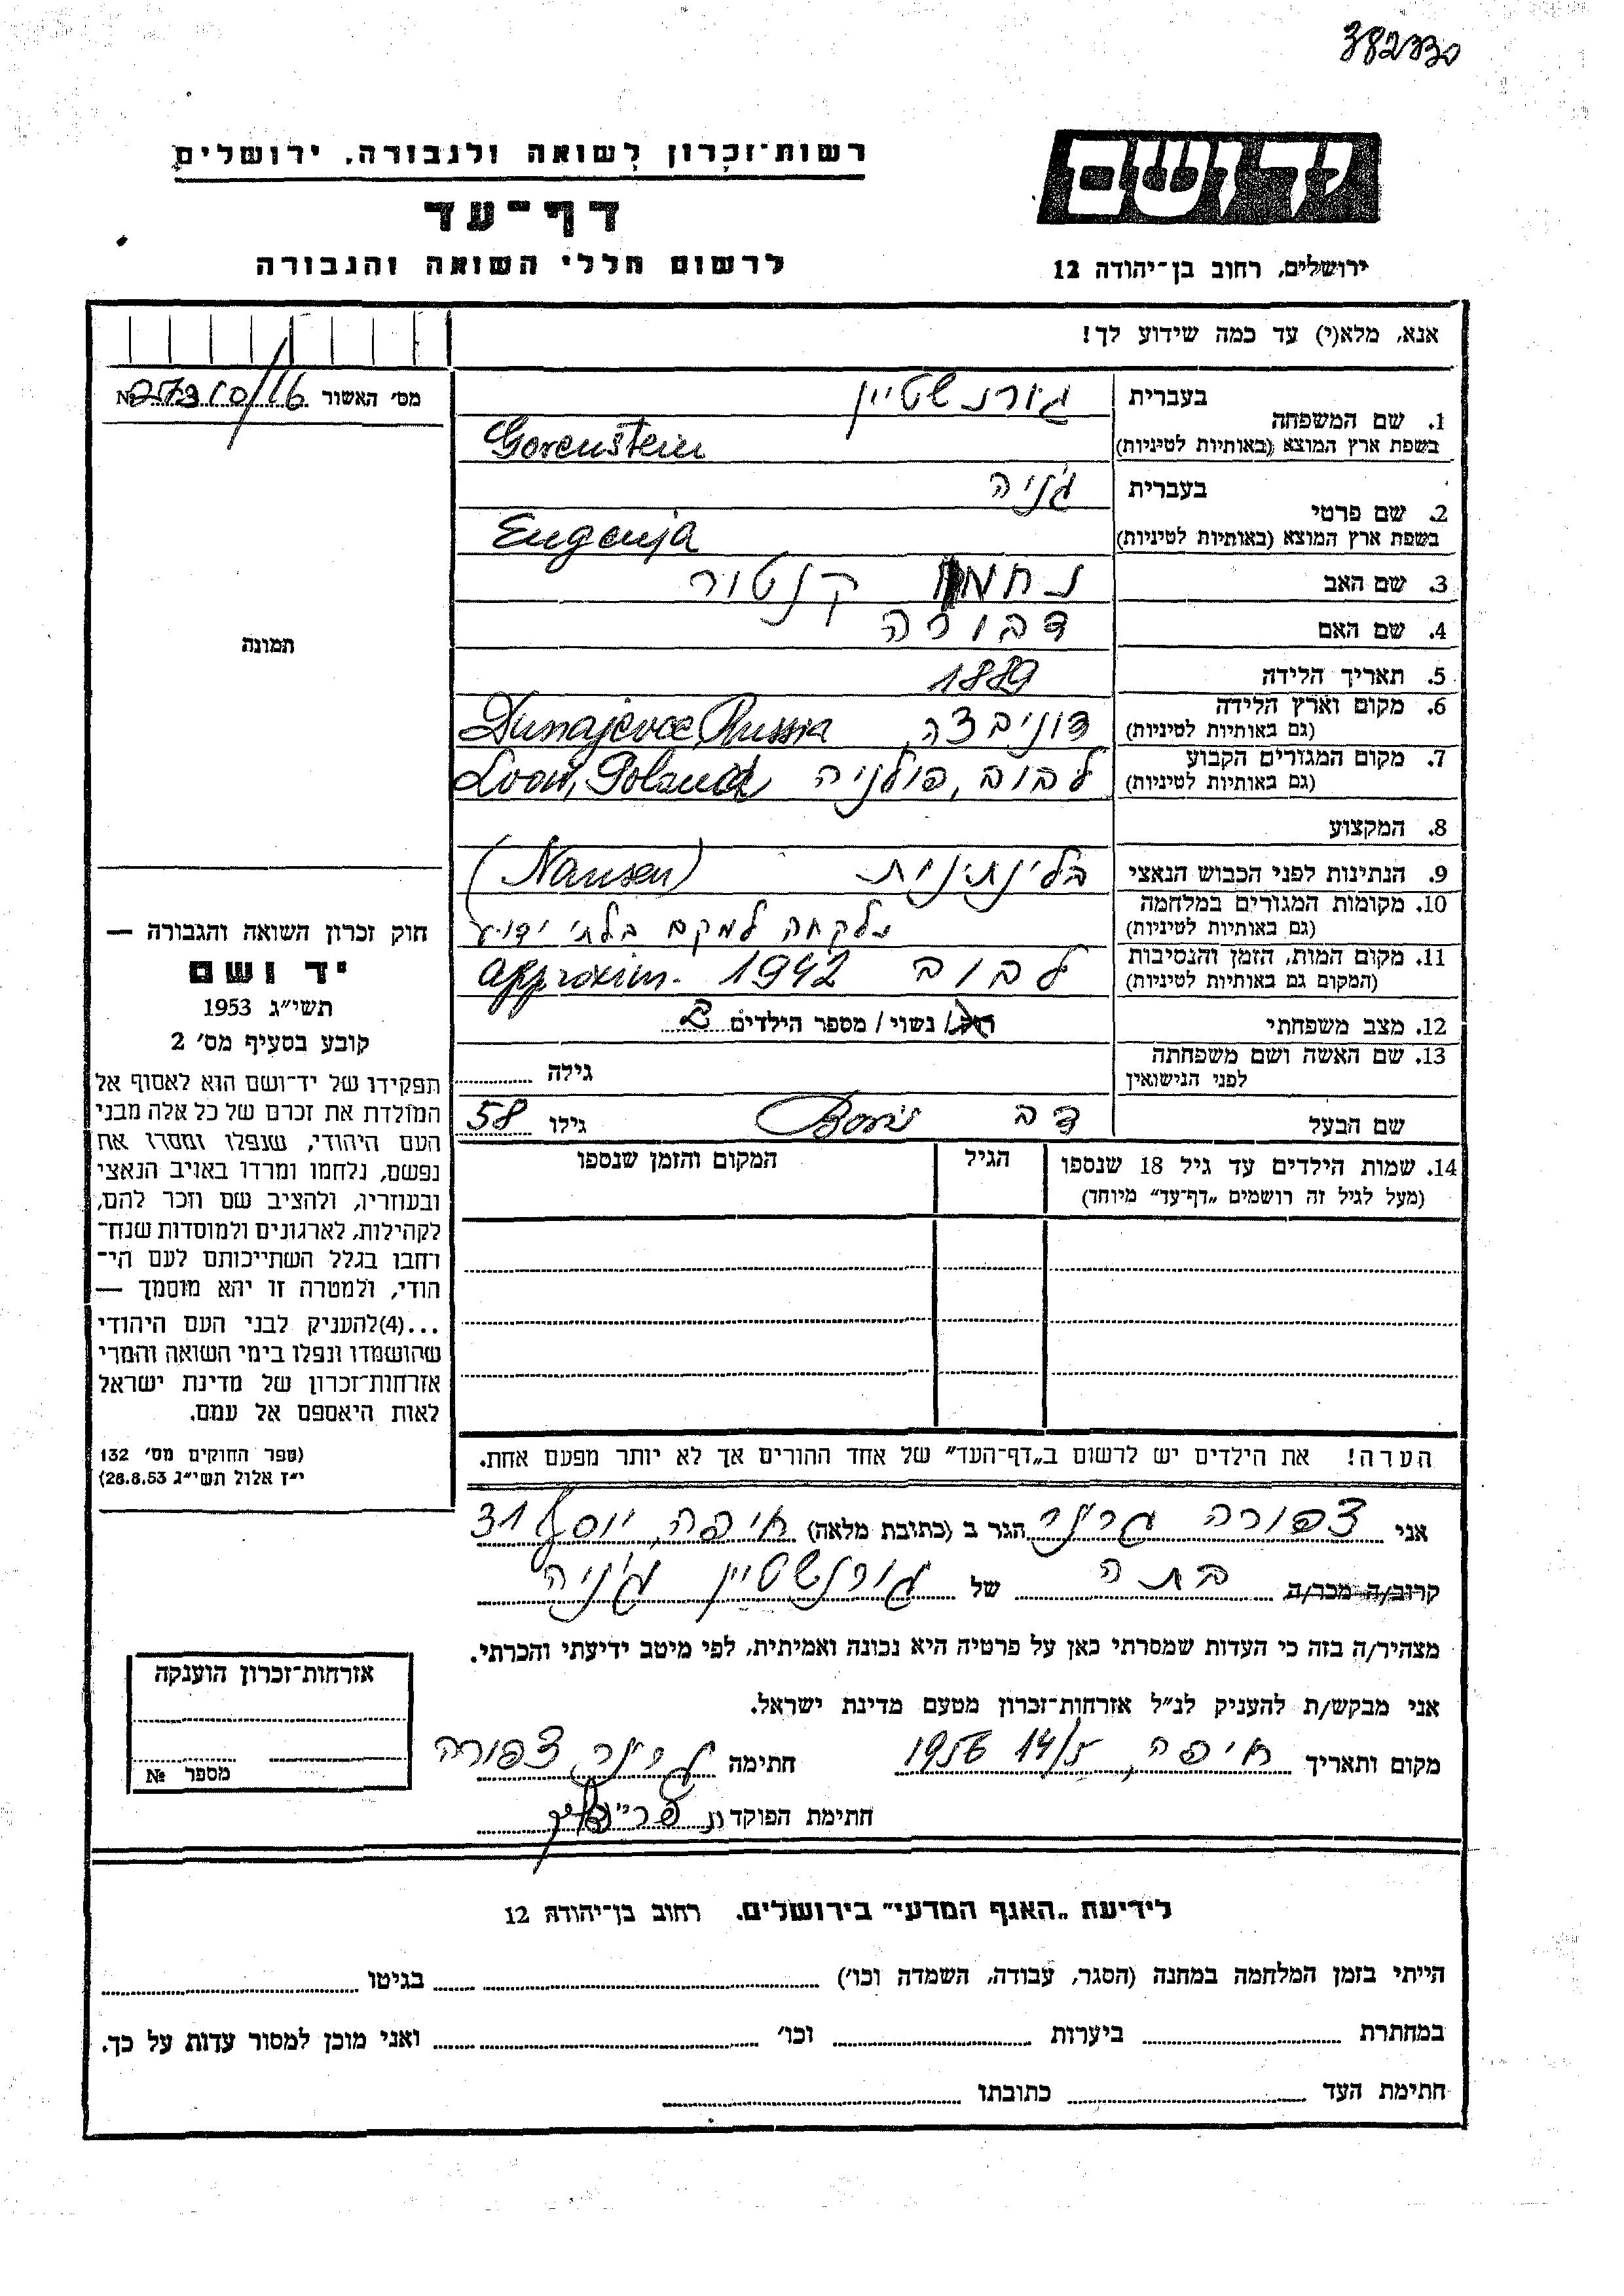 382330
יד ושם
ירושלים, רחוב בן־יהודה 12
רשות־זכרון לשואה ולגבורה, ירושלים
דף־עד
לרשום חללי השואה והגבורה
אנא, מלא(י) עד כמה שידוע לך!
מס׳ האשור № 27310/16
1. שם המשפחה
בעברית גורנשטיין
בשפת ארץ המוצא (באותיות לטיניות) Gorenstein
2. שם פרטי
בעברית ג׳ניה
בשפת ארץ המוצא (באותיות לטיניות) Eugenja
3. שם האב נחמן קנטור
4. שם האם דבורה
5. תאריך הלידה 1889
6. מקום וארץ הלידה
(גם באותיות לטיניות) דוניבצה Dunajevce, Russia
7. מקום המגורים הקבוע
(גם באותיות לטיניות) לבוב, פולניה Lvov, Poland
8. המקצוע
9. הנתינות לפני הכבוש הנאצי בלי נתינות (Nansen)
10. מקומות המגורים במלחמה
(גם באותיות לטיניות) נלקחה למקם בלתי ידוע
11. מקום המות, הזמן והנסיבות
(המקום גם באותיות לטיניות) לבוב approxim. 1942
12. מצב משפחתי רוק/ נשוי/ מספר הילדים 2
13. שם האשה ושם משפחתה
לפני הנישואין גילה
שם הבעל דב Boris גילו 58
14. שמות הילדים עד גיל 18 שנספו
(מעל לגיל זה רושמים „דף־עד” מיוחד)
הגיל
המקום והזמן שנספו
תמונה
חוק זכרון השואה והגבורה —
יד ושם
תשי״ג 1953
קובע בסעיף מס׳ 2
תפקידו של יד־ושם הוא לאסוף אל
המולדת את זכרם של כל אלה מבני
העם היהודי, שנפלו ומסרו את
נפשם, נלחמו ומרדו באויב הנאצי
ובעוזריו, ולהציב שם וזכר להם,
לקהילות, לארגונים ולמוסדות שנח־
רחבו בגלל השתייכותם לעם הי־
הודי, ולמטרה זו יהא מוסמך —
...(4)להעניק לבני העם היהודי
שהושמדו ונפלו בימי השואה והמרי
אזרחות־זכרון של מדינת ישראל
לאות היאספם אל עמם.
(ספר החוקים מס׳ 132
י״ז אלול תשי״ג 28.8.53)
הערה! את הילדים יש לרשום ב„דף־העד” של אחד ההורים אך לא יותר מפעם אחת.
אני צפורה גרינר הגר ב (כתובת מלאה) חיפה, יוסף 31
קרוב/ה מכר/ה בתה של גורנשטיין ג׳ניה
מצהיר/ה בזה כי העדות שמסרתי כאן על פרטיה היא נכונה ואמיתית, לפי מיטב ידיעתי והכרתי.
אני מבקש/ת להעניק לנ״ל אזרחות־זכרון מטעם מדינת ישראל.
מקום ותאריך חיפה, 14/5 1956 חתימה גרינר צפורה
חתימת הפוקד
אזרחות־זכרון הוענקה
מספר №
לידיעת „האגף המדעי” בירושלים. רחוב בן־יהודה 12
הייתי בזמן המלחמה במחנה (הסגר, עבודה, השמדה וכו׳) בגיטו
במחתרת ביערות וכו׳ ואני מוכן למסור עדות על כך.
חתימת העד כתובתו